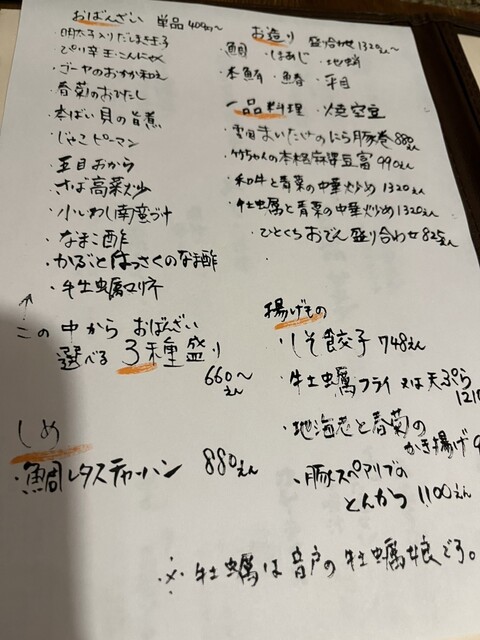 おばんざい 単品 409円〜
・明太子入りだしまき玉子
・ぴり辛玉こんにゃく
・ゴーヤのおかか和え
・春菊のおひたし
・本ばい貝の旨煮
・じゃこピーマン
・五目おから
・さば高菜炒め
・小いわし南蛮づけ
・なまこ酢
・かぶとはっさくのなま酢
・牡蠣マリネ
↑
この中から おばんざい
選べる 3種盛り
660〜
えん
しめ
・鯛レタスチャーハン 880えん
お造り 盛り合わせ 1320えん〜
・鯛 ・しまあじ ・地蛸
・本鮪 ・鰆 ・平目
一品料理 ・焼空豆
・雪国まいたけのにら豚巻 880えん
・竹ちゃんの本格麻婆豆富 990えん
・和牛と青菜の中華炒め 1320えん
・牡蠣と青菜の中華炒め 1320えん
・ひとくちおでん盛り合わせ 825えん
揚げもの
・しそ餃子 748えん
・牡蠣フライ 又は天ぷら
121
・地海老と春菊の
かき揚げ 9
・豚スペアリブの
とんかつ 1100えん
※ 牡蠣は音戸の牡蠣娘です。